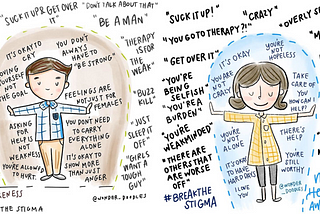 "SUCK IT UP & GET OVER IT"
"DON'T TALK ABOUT THAT"
BE A MAN"
"THERAPY
IS FOR
THE
WEAK"
"BUZZ
KILL"
"JUST
SLEEP IT
OFF"
"GIRLS
WANT A
TOUGH
GUY"
IT'S OK TO
CRY
LOVING
IS NOT
THE GOAL
YOU DON'T
ALWAYS
HAVE TO
"BE STRONG"
FEELINGS ARE
NOT JUST FOR
FEMALES
ASKING
FOR HELP
IS NOT
WEAKNESS
YOU'RE ALLOWED
TO HURT.
YOU DON'T NEED
TO CARRY
EVERYTHING
ALONE
IT'S OKAY TO
SHOW MORE
THAN JUST
ANGER
@WONDER_DOODLES
THE STIGMA
"SUCK IT UP!"
"CRAZY"
"YOU GO TO THERAPY?!"
"GET OVER IT"
"YOU'RE
BEING
SELFISH"
"YOU'RE A
BURDEN"
"YOU'RE
WEAKMINDED"
"THERE ARE
OTHERS THAT
ARE WORSE
OFF"
#BREAKTHE
STIGMA
IT'S OKAY
YOU ARE
NOT
CRAZY
YOU'RE
NOT
HOPELESS
TAKE CARE
OF YOU
HOW CAN I
HELP?
YOU'RE
NOT
ALONE
THERE'S
HELP
IT'S OKAY
TO HAVE
HARD DAYS
YOU'RE
STILL
WORTHY
I LOVE
YOU
@WONDER_
DOODLES